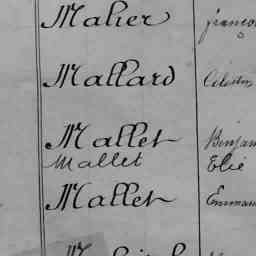 Maher françois
Mallard Célestin
Mallet Benjam
Mallet Elie
Mallet Emmanu